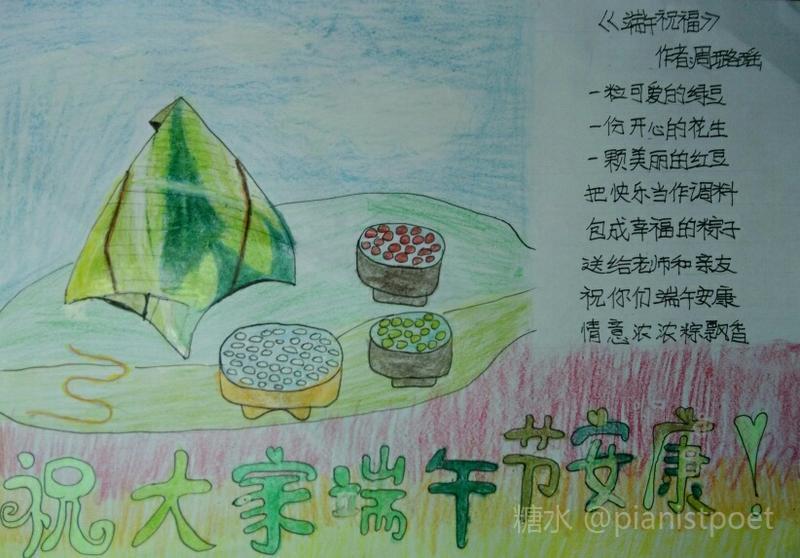 《端午祝福》
作者:周璐瑶
一粒可爱的绿豆
一份开心的花生
一颗美丽的红豆
把快乐当作调料
包成幸福的粽子
送给老师和亲友
祝你们端午安康
情意浓浓粽飘香
祝大家端午节安康!
糖水 @pianistpoet